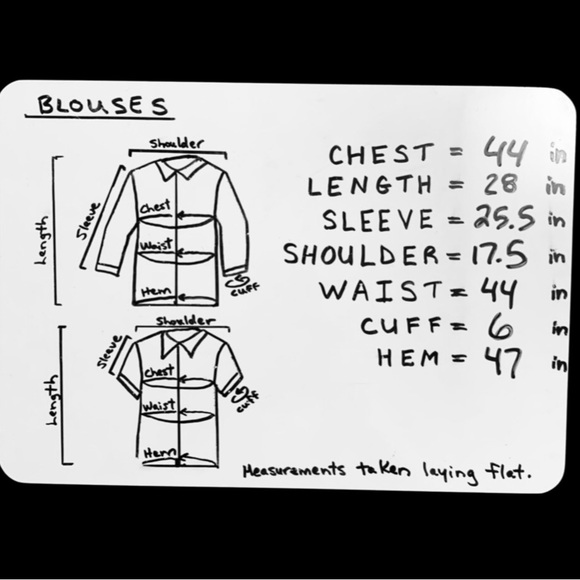 BLOUSES
Shoulder
Length
Sleeve
Chest
Waist
Hem
cuff
Shoulder
Length
Sleeve
Chest
Waist
Hem
cuff
CHEST = 44 in
LENGTH = 28 in
SLEEVE = 25.5 in
SHOULDER = 17.5 in
WAIST = 44 in
CUFF = 6 in
HEM = 47 in
Measurements taken laying flat.